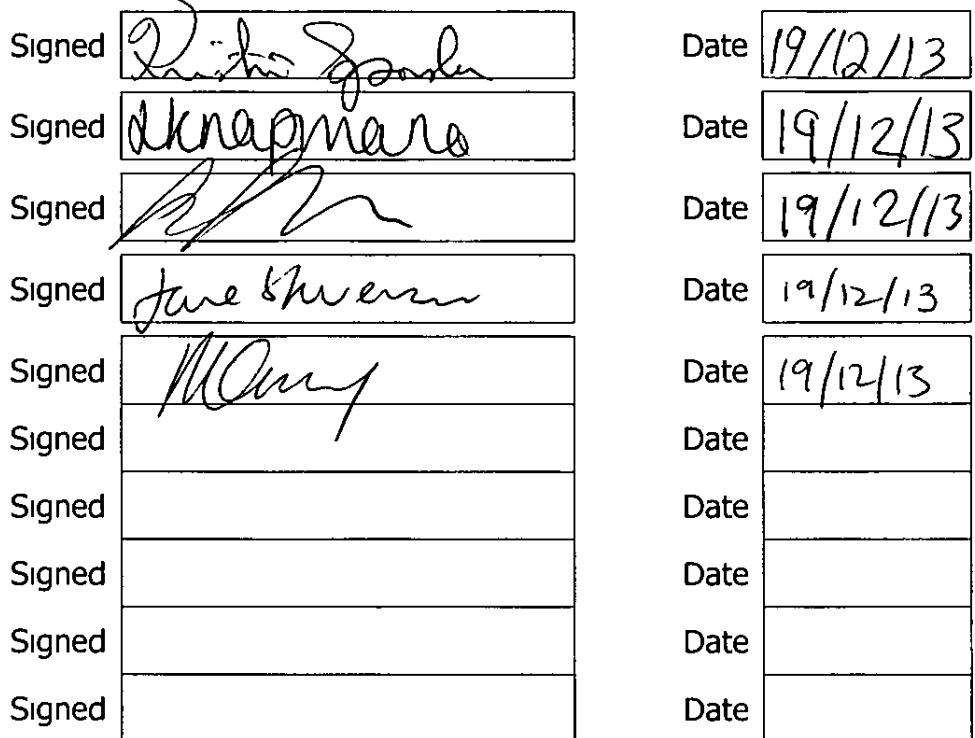 Signed Date 19/12/13
Signed Date 19/12/13
Signed Date 19/12/13
Signed Jane Date 19/12/13
Signed Date 19/12/13
Signed Date
Signed Date
Signed Date
Signed Date
Signed Date